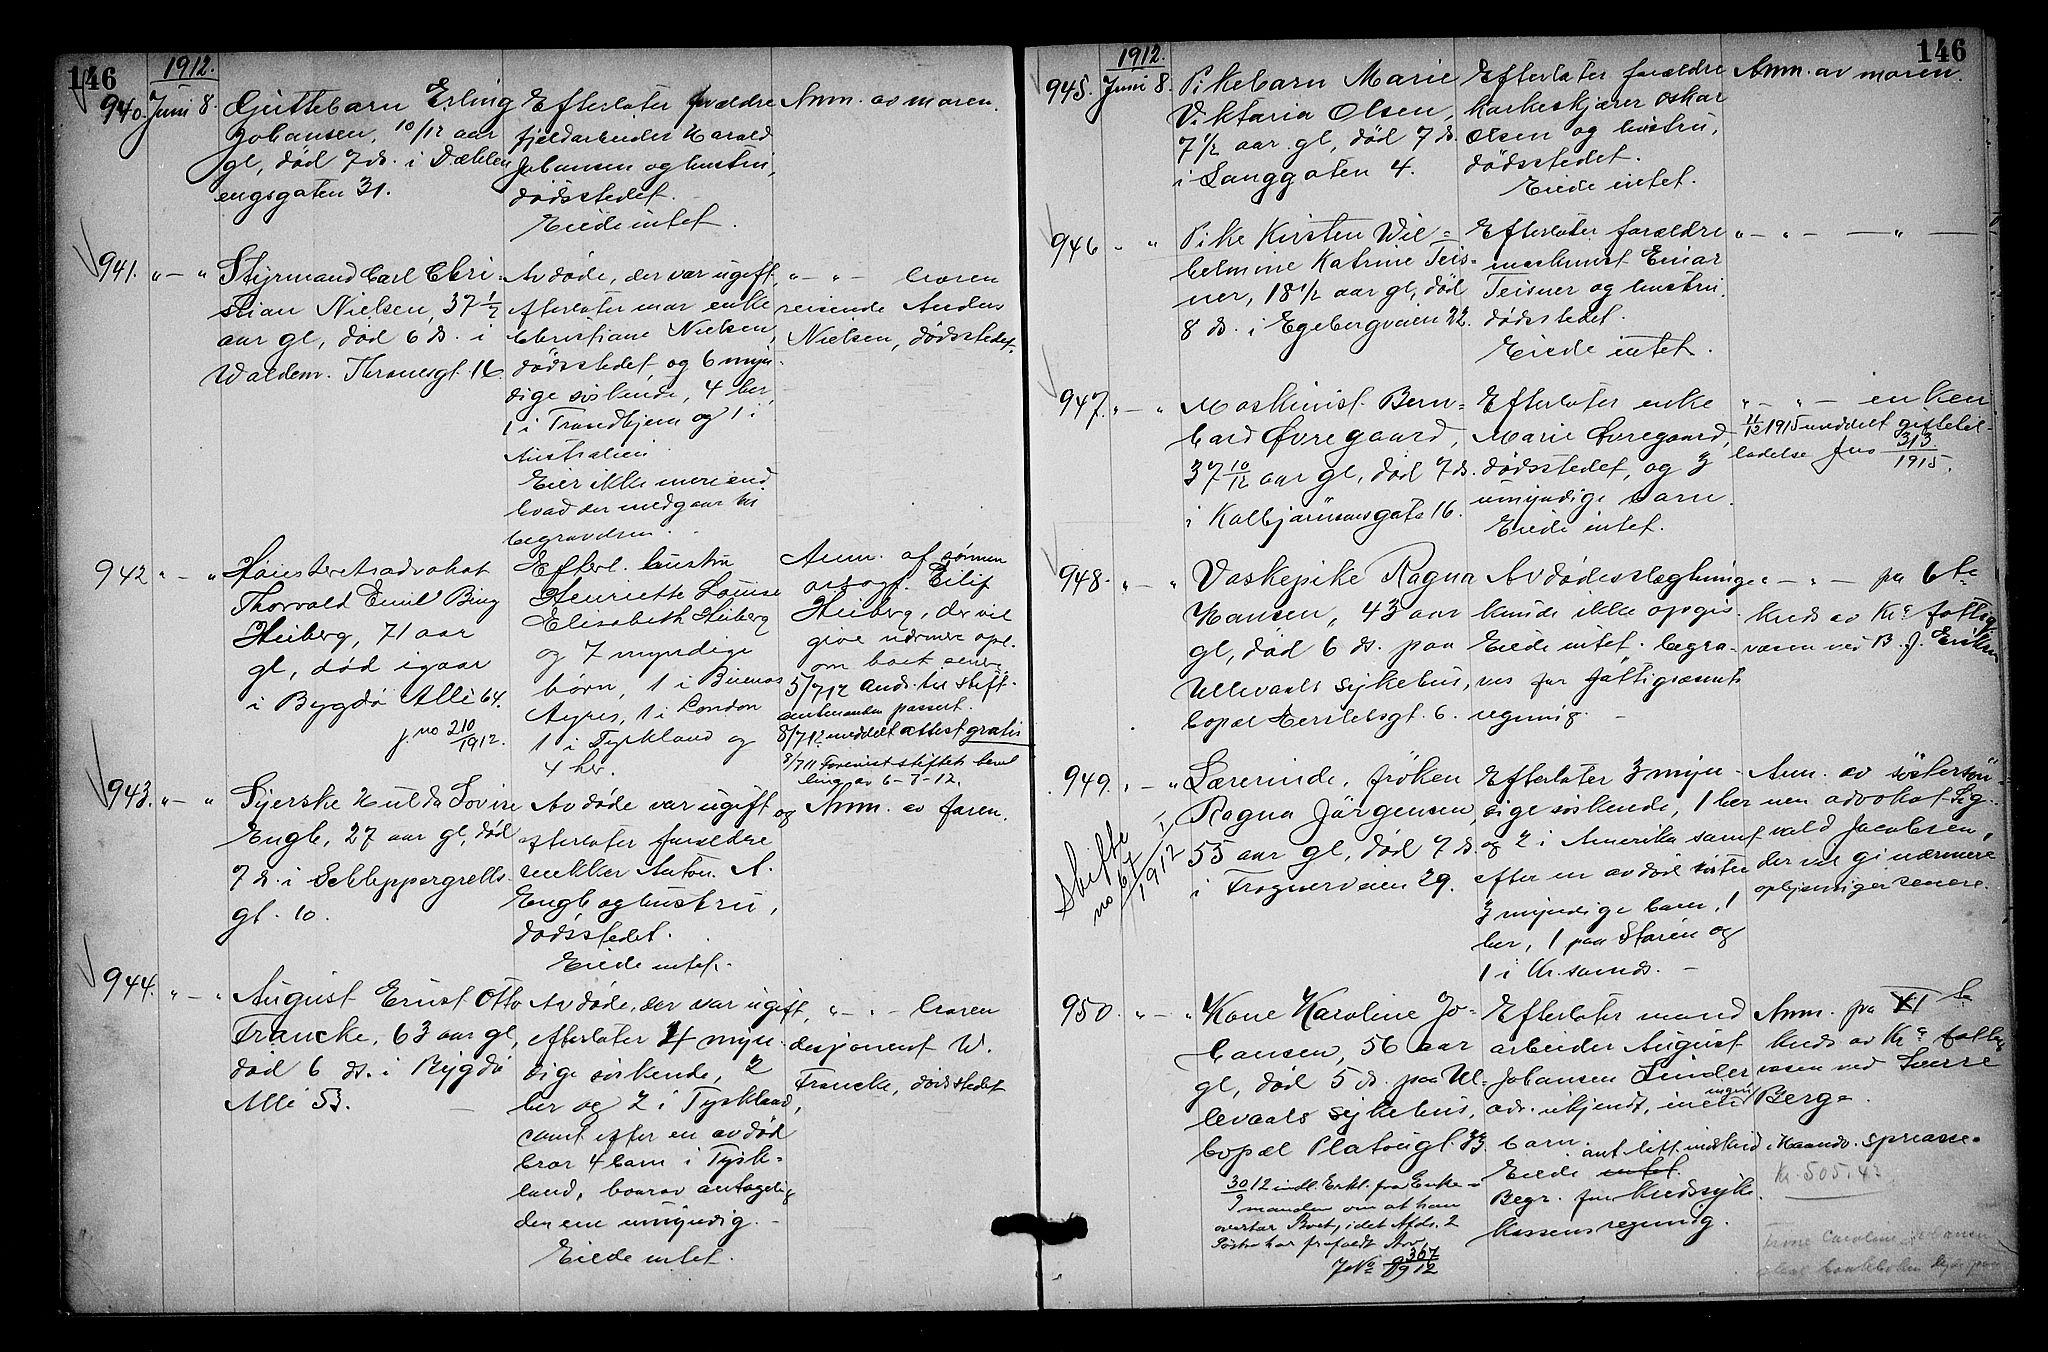 146
1912.
940. Juni 8.
Guttebarn Erling
Johansen, 10/12 aar
gl, død 7 ds. i Dælen
engsgaten 31.
Efterlater forældre
fjeldarbeider Harald
Johansen og hustru,
dødsstedet.
Eiede intet.
Anm. av moren.
941. " — "
Styrmand Carl Chri-
stian Nielsen, 37 1/2
aar gl, død 6 ds. i
Waldem. Thranesgt. 16.
Avdøde, der var ugift,
efterlater mor enke
Christiane Nielsen,
dødsstedet, og 6 myn-
dige søskende, 4 her,
1 i Trondhjem og 1 i
Australien
Eier ikke mere end
hvad der medgaar til
begravelsen.
" — " — broren
reisende Anders
Nielsen, dødsstedet.
942 " — "
Høiesteretsadvokat
Thorvald Emil Bing
Heiberg, 71 aar
gl, død igaar
i Bygdø Allé 64.
j. no 210/1912.
Efterl. hustru
Henriette Louise
Elisabeth Heiberg
og 7 myndige
børn, 1 i Buenos
Ayres, 1 i London
1 i Tyskland og
4 her.
Anm. af sønnen
Eilif
Heiberg, der vil
give nærmere opl.
om boet senere
5/7 12 Ands. til stift-
passert.
8/7 12 meddelt attest gratis
stiftets bevil
ling av 6-7-12.
943. " — "
Syerske Hulda Lovise
Engh, 27 aar gl, død
7 ds. i Schleppegrells
gt. 10.
Avdøde var ugift og
efterlater forældre
snekker Anton A.
Engh og hustru,
dødsstedet.
Eiede intet.
Anm. av faren.
944. " — "
August Ernst Otto
Francke, 63 aar gl,
død 6 ds. i Bygdø
Allé 53.
Avdøde, der var ugift,
efterlater 4 myn-
dige søskende, 2
her og 2 i Tyskland,
samt efter en avdød
bror 4 barn i Tysk-
land, hvorav antagelig
den ene umyndig.
Eiede intet.
" — " — broren
disponent W.
Francke, dødsstedet
146
1912.
945. Juni 8.
Pikebarn Marie
Viktoria Olsen,
7 1/2 aar gl, død 7 ds.
i Langgaten 4.
Efterlater forældre
korkeskjærer Oskar
Olsen og hustru,
dødsstedet.
Eiede intet.
Anm. av moren.
946 " "
Pike Kirsten Wil-
helmine Katrine Teis-
ner, 18 1/2 aar gl, død
8 ds. i Egebergveien 22.
Efterlater forældre
maskinist Einar
Teisner og hustru,
dødsstedet.
Eiede intet.
" — " — " —
947. " — "
Maskinist Bern-
hard Øvregaard,
37 10/12 aar gl, død 7 ds.
i Kolbjørnsensgate 16.
Efterlater enke
Marie Øvregaard,
dødsstedet, og 3
umyndige barn.
Eiede intet.
" — " — enken
11/12 1915 meddelt giftetil-
ladelse Jno 313/1915.
948. " — "
Vaskepike Ragna
Hansen, 43 aar
gl, død 6 ds. paa
Ullevaals sykehus,
bopæl Herslebsgt. 6.
Avdødes slegtninge
kunde ikke opgis.
Eiede intet. Begra-
ves for fattigvæsenets
regning.
" — " — pa 6te
kreds av Kra fattig
væsen ved B. J.
949. " — "
Skifte
no 67/1912
Lærerinde, frøken
Ragna Jørgensen,
55 aar gl, død 7 ds.
i Frognerveien 29.
Efterlater 3 myn-
dige søskende, 1 her
og 2 i Amerika samt
efter en avdød søster
3 myndige barn, 1
her, 1 paa Støren og
1 i Kr.sands.
Anm. av søstersøn-
nen advokat Sig-
vald Jacobsen,
der vil gi nærmere
oplysninger senere.
950. " — "
Kone Karoline Jo-
hansen, 56 aar
gl, død 5 ds. paa Ul-
levaals sykehus,
bopæl Platousgt. 33.
30/9 12 indl. Erkl. fra Enke-
manden om at han
overtar Boet, idet Afds. 2
Søstre har frafaldt Arv
JNo 367/1912
Efterlater mand
arbeider August
Johansen Linder
adr. ukjendt, ingen
barn. ant. litt indskud i Haandv. spareasse.
Eiede intet.
Begr. for Kredssyke
kassens regning.
Anm. pa XI te
kreds av Kra fattig
væsen ved Lærer
Berg.
Kr. 505.43